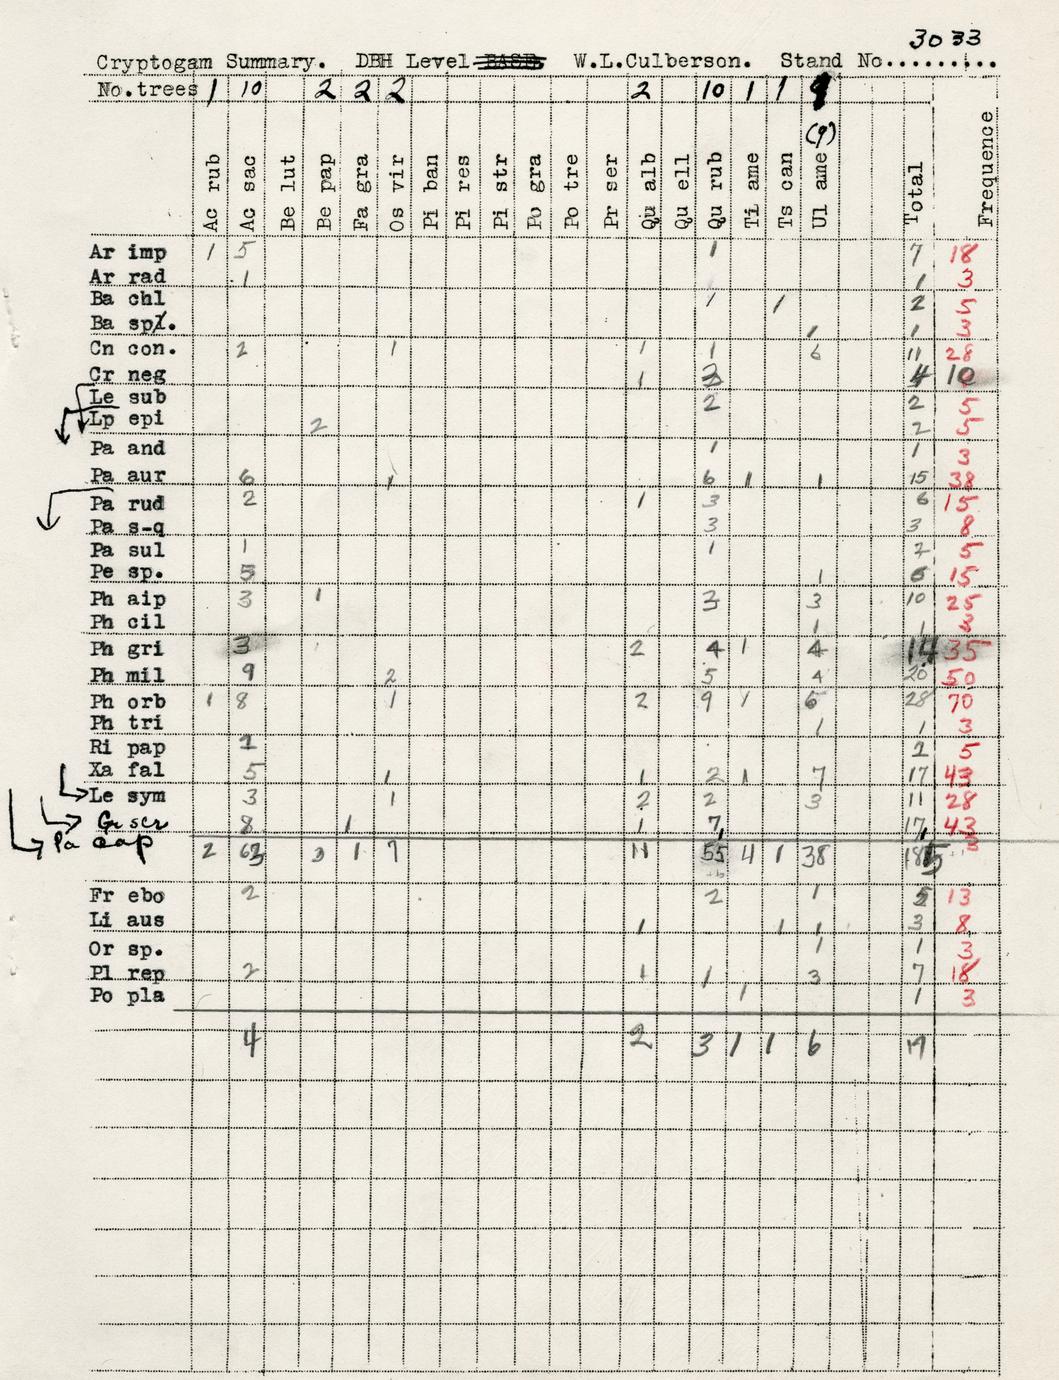 3033
Cryptogam Summary. DBH Level W.L.Culberson. Stand No.........
No.trees 1 10 2 2 2 2 10 1 1 9
(9)
Ac rub Ac sac Be lut Be pap Fa gra Os vir Pi ban Pi res Pi str Po gra Po tre Pr ser Qu alb Qu ell Qu rub Ti ame Ts can Ul ame Total Frequence
Ar imp 1 5 1 7 18
Ar rad 1 1 3
Ba chl 1 1 2 5
Ba sp. 1 1 3
Cn con. 2 1 1 1 6 11 28
Cr neg 1 3 4 10
Le sub 2 2 5
Lp epi 2 2 5
Pa and 1 1 3
Pa aur 6 1 6 1 1 15 38
Pa rud 2 1 3 6 15
Pa s-q 3 3 8
Pa sul 1 1 2 5
Pe sp. 5 1 6 15
Ph aip 3 1 3 3 10 25
Ph cil 1 1 3
Ph gri 3 2 4 1 4 14 35
Ph mil 9 2 5 4 20 50
Ph orb 1 8 1 2 9 1 6 28 70
Ph tri 1 1 3
Ri pap 2 2 5
Xa fal 5 1 1 2 1 7 17 43
Le sym 3 1 2 2 3 11 28
Gr scr 8 1 1 7 17 43
Pa cap 3
2 63 3 1 7 11 55 4 1 38 185
Fr ebo 2 2 1 5 13
Li aus 1 1 1 3 8
Or sp. 1 1 3
Pl rep 2 1 1 3 7 18
Po pla 1 1 3
4 2 3 1 1 6 17